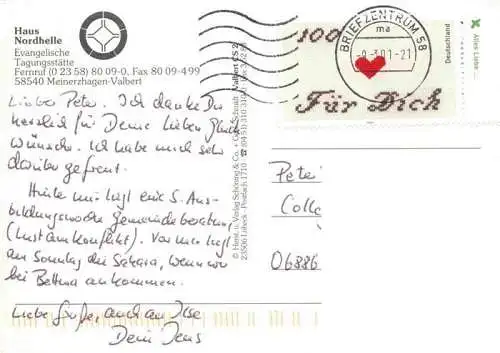 Haus
Nordhelle
Evangelische
Tagungsstätte
Fernruf (0 23 58) 80 09-0, Fax 80 09-499
58540 Meinerzhagen-Valbert
Lieber Peter. Ich danke Dir
herzlich für Deine lieben Glück
wünsche. Ich habe mich sehr
darüber gefreut.
Hinter mir liegt eine 5. Aus-
bildungswoche Gemeindeberatung
(Lust am Konflikt). Vor mir liegt
am Sonntag die Sahara, wenn wir
bei Bettina ankommen.
Liebe Grüße, auch an Ilse
Dein Jens
© Herst. u. Verlag Schöning & Co. + Gebr. Schmidt
23506 Lübeck · Postfach 1710
Valbert CS 2
100
BRIEFZENTRUM 58
ma
-9.3.01-21
Für Dich
Deutschland
Alles Liebe
Peter
Colle
06886